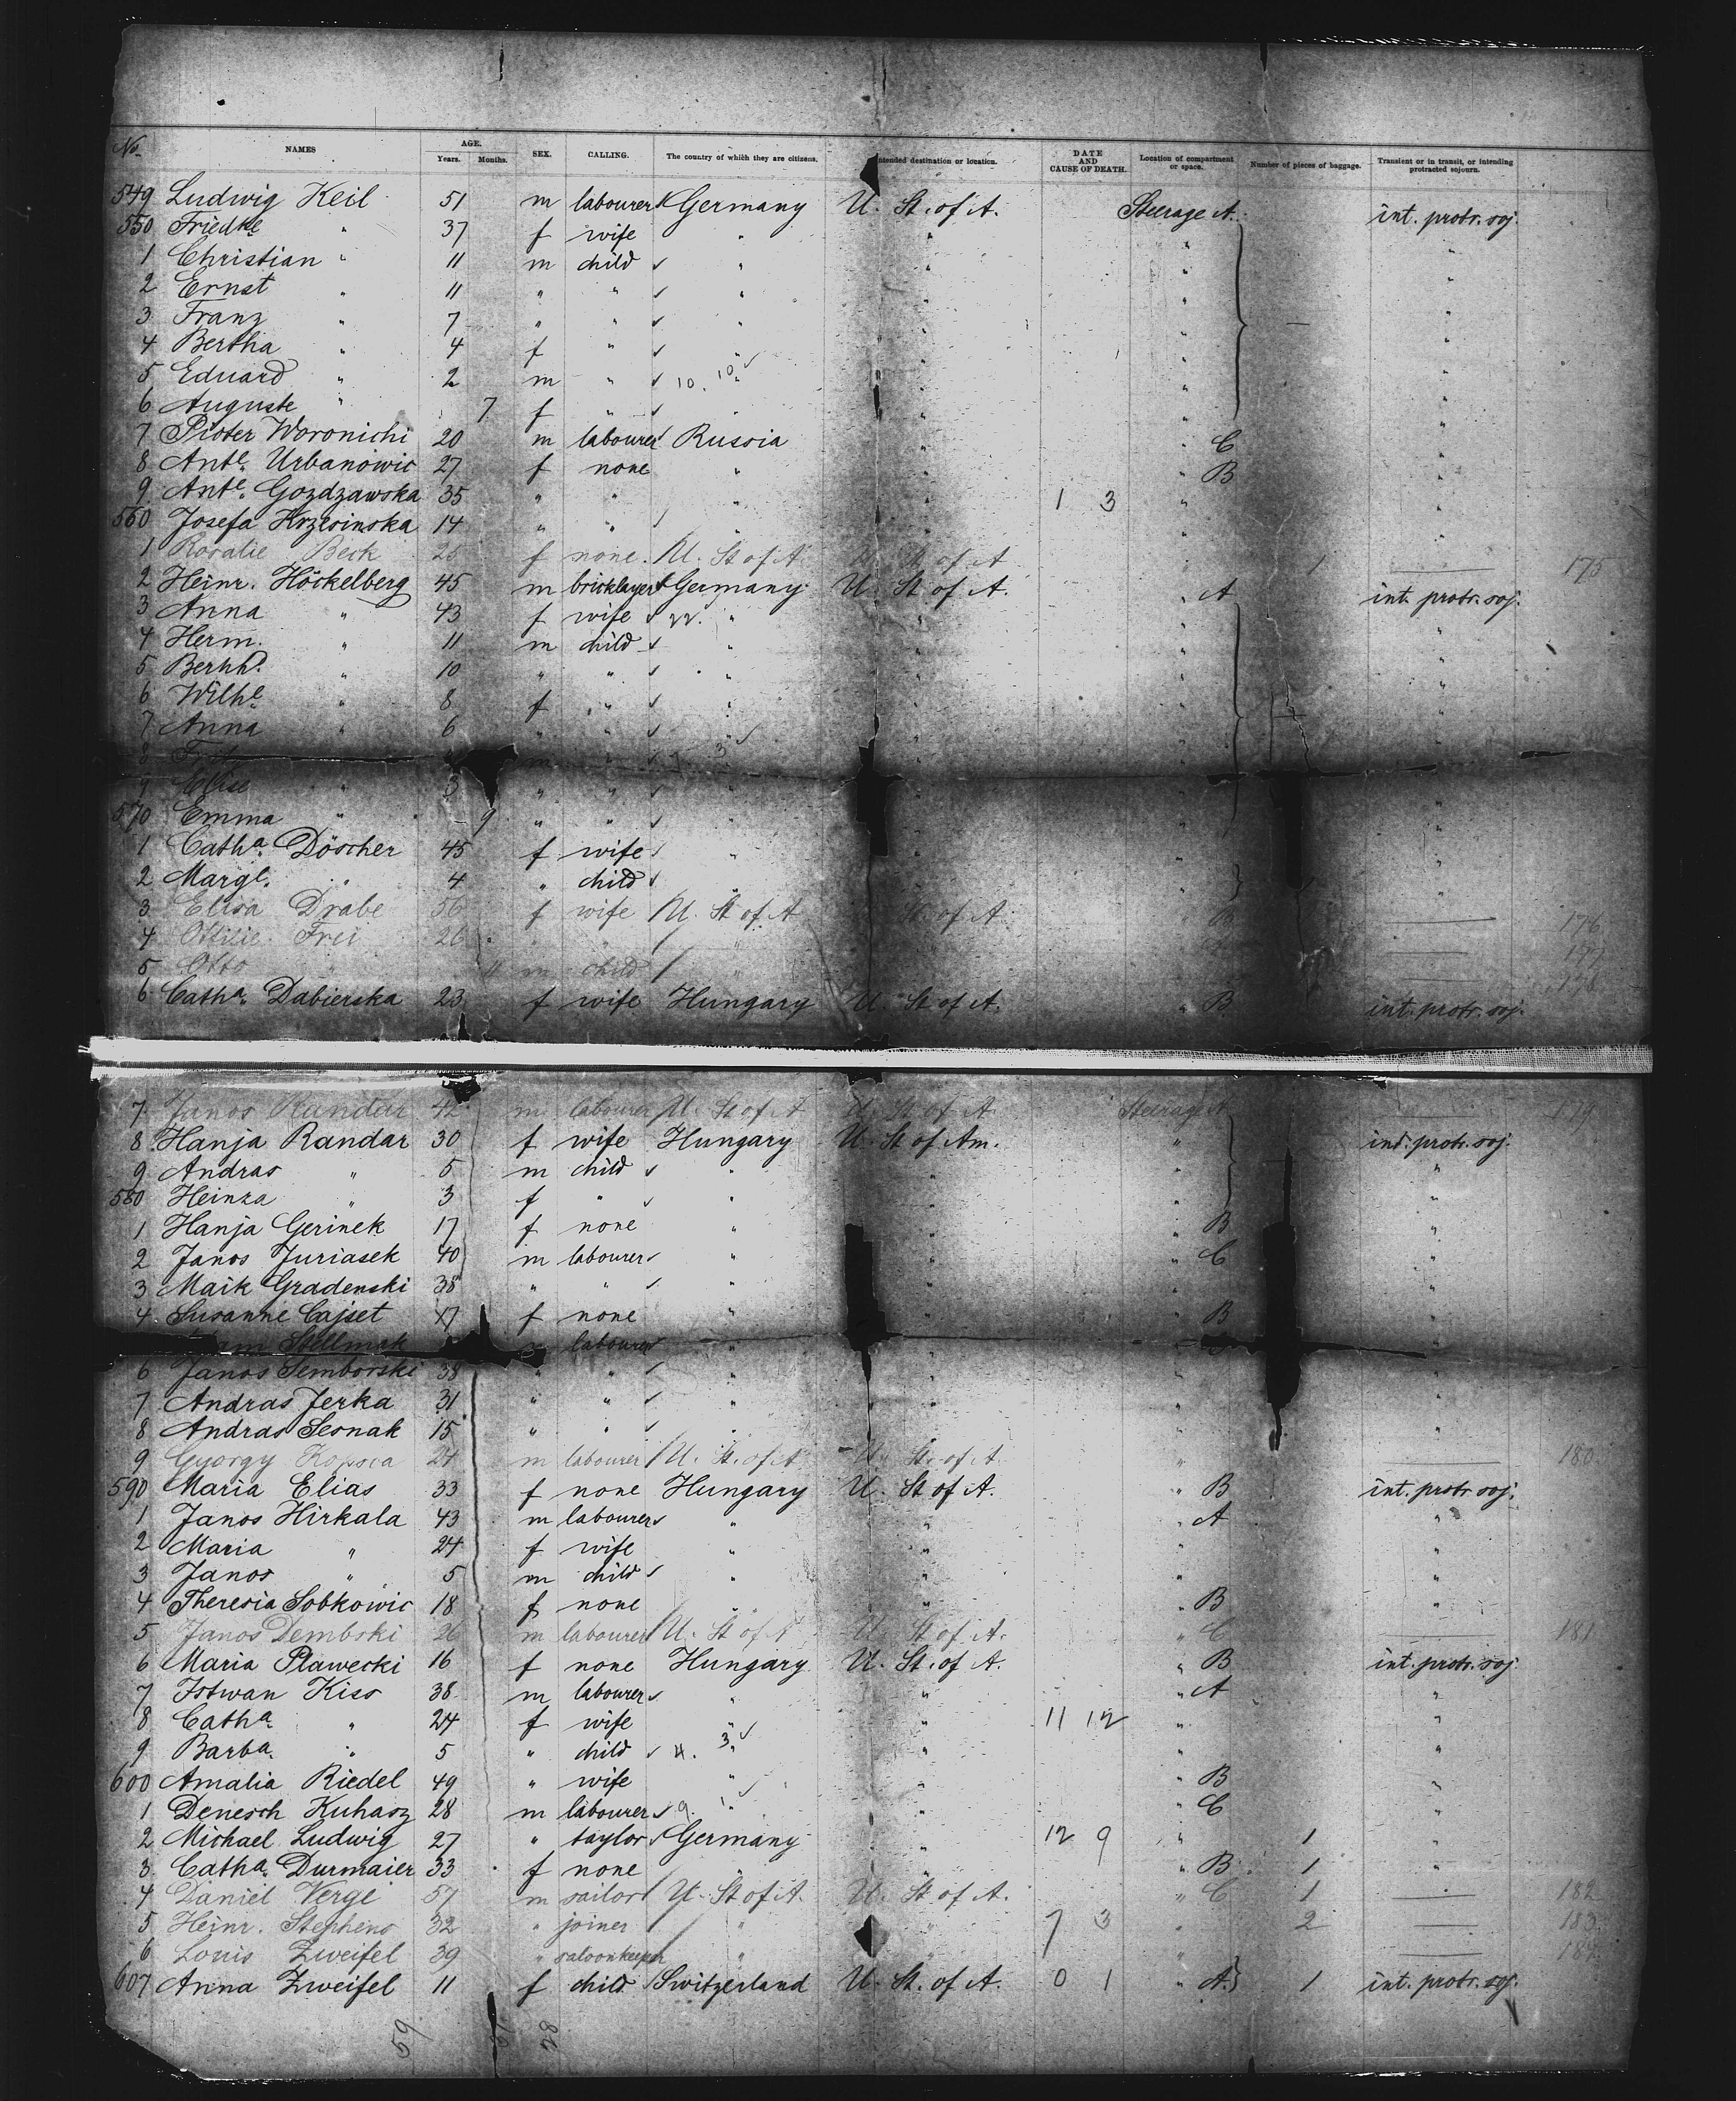 No. NAMES AGE. Years. Months. SEX. CALLING. The country of which they are citizens. Intended destination or location. DATE AND CAUSE OF DEATH. Location of compartment or space. Number of pieces of baggage. Transient or in transit, or intending protracted sojourn.
549 Ludwig Keil 51 m labourer Germany U. St. of A. Steerage A. int. protr. soj.
550 Friedke " 37 f wife " " " "
1 Christian " 11 m child " " " "
2 Ernst " 11 " " " " " "
3 Franz " 7 " " " " " "
4 Bertha " 4 f " " " " "
5 Eduard " 2 m " 10. 10 " " " "
6 Auguste " 7 f " " " " "
7 Pioter Woronichi 20 m labourer Russia " " C "
8 Ante. Urbanowic 27 f none " " " B "
9 Ante. Gozdzawska 35 " " " " 1 3 " "
560 Josefa Krzesinska 14 " " " " " "
1 Rosalie Beck 25 f none U. St of A U. St of A 1 175
2 Heinr. Höckelberg 45 m bricklayer Germany U. St of A. " A int. protr. soj.
3 Anna " 43 f wife 22. " " " "
4 Herm. " 11 m child " " " "
5 Bernhd. " 10 " " " " " "
6 Wilhe " 8 f " " " " "
7 Anna " 6 " " " " " "
8 m " 7 3
9 Elise " 3 " " " "
570 Emma " 9 " " " " "
1 Catha. Döscher 45 f wife " " " "
2 Marge. " 4 " child " " " "
3 Elisa Drabe 56 f wife U. St of A of A B 176
4 Ottilie Frei 26 " " " 177
5 Otto " 11 m child " 178
6 Catha. Dabierska 23 f wife Hungary U. St of A. " B int. protr. soj.
7 Janos Randar 42 m labourer U. St of A U. St of A Steerage A 179
8 Hanja Randar 30 f wife Hungary U. St of Am. " int. protr. soj.
9 Andras " 5 m child " " " "
580 Heinza " 3 f " " " " "
1 Hanja Gerinek 17 f none " " " B "
2 Janos Juriasek 40 m labourer " " " C "
3 Maik Gradenski 38 " " " " " "
4 Susanne Cajset 17 f none " " " B "
Stellmak labourer "
6 Janos Semborski 38 " " " " " "
7 Andras Jerka 31 " " " " " "
8 Andras Sesnak 15 " " " " " "
9 Gyorgy Kopsca 24 m labourer U. St. of A U. St. of A " 180
590 Maria Elias 33 f none Hungary U. St of A. " B int. protr. soj.
1 Janos Hirkala 43 m labourer " " " A "
2 Maria " 24 f wife " " " "
3 Janos " 5 m child " " " "
4 Theresia Sobkowic 18 f none " " " B "
5 Janos Dembski 26 m labourer U. St of A U. St of A. " C 181
6 Maria Plawecki 16 f none Hungary U. St. of A. " B int. protr. soj.
7 Istwan Kiss 38 m labourer " " " A "
8 Catha. " 24 f wife " " 11 12 " "
9 Barba. " 5 " child 4. 3 " " " "
600 Amalia Riedel 49 " wife " " " B "
1 Denesch Kuhasz 28 m labourer 9. 1 " " " C "
2 Michael Ludwig 27 " taylor Germany " 12 9 " 1 "
3 Catha. Durmaier 33 f none " " " B 1 "
4 Daniel Verge 57 m sailor U. St of A. U. St of A. " C 1 182
5 Heinr. Stephens 32 " joiner " " 7 3 " 2 183
6 Louis Zweifel 39 " saloonkeeper " " " 184
607 Anna Zweifel 11 f child Switzerland U. St. of A. 0 1 " A. 1 int. protr. soj.
59 28